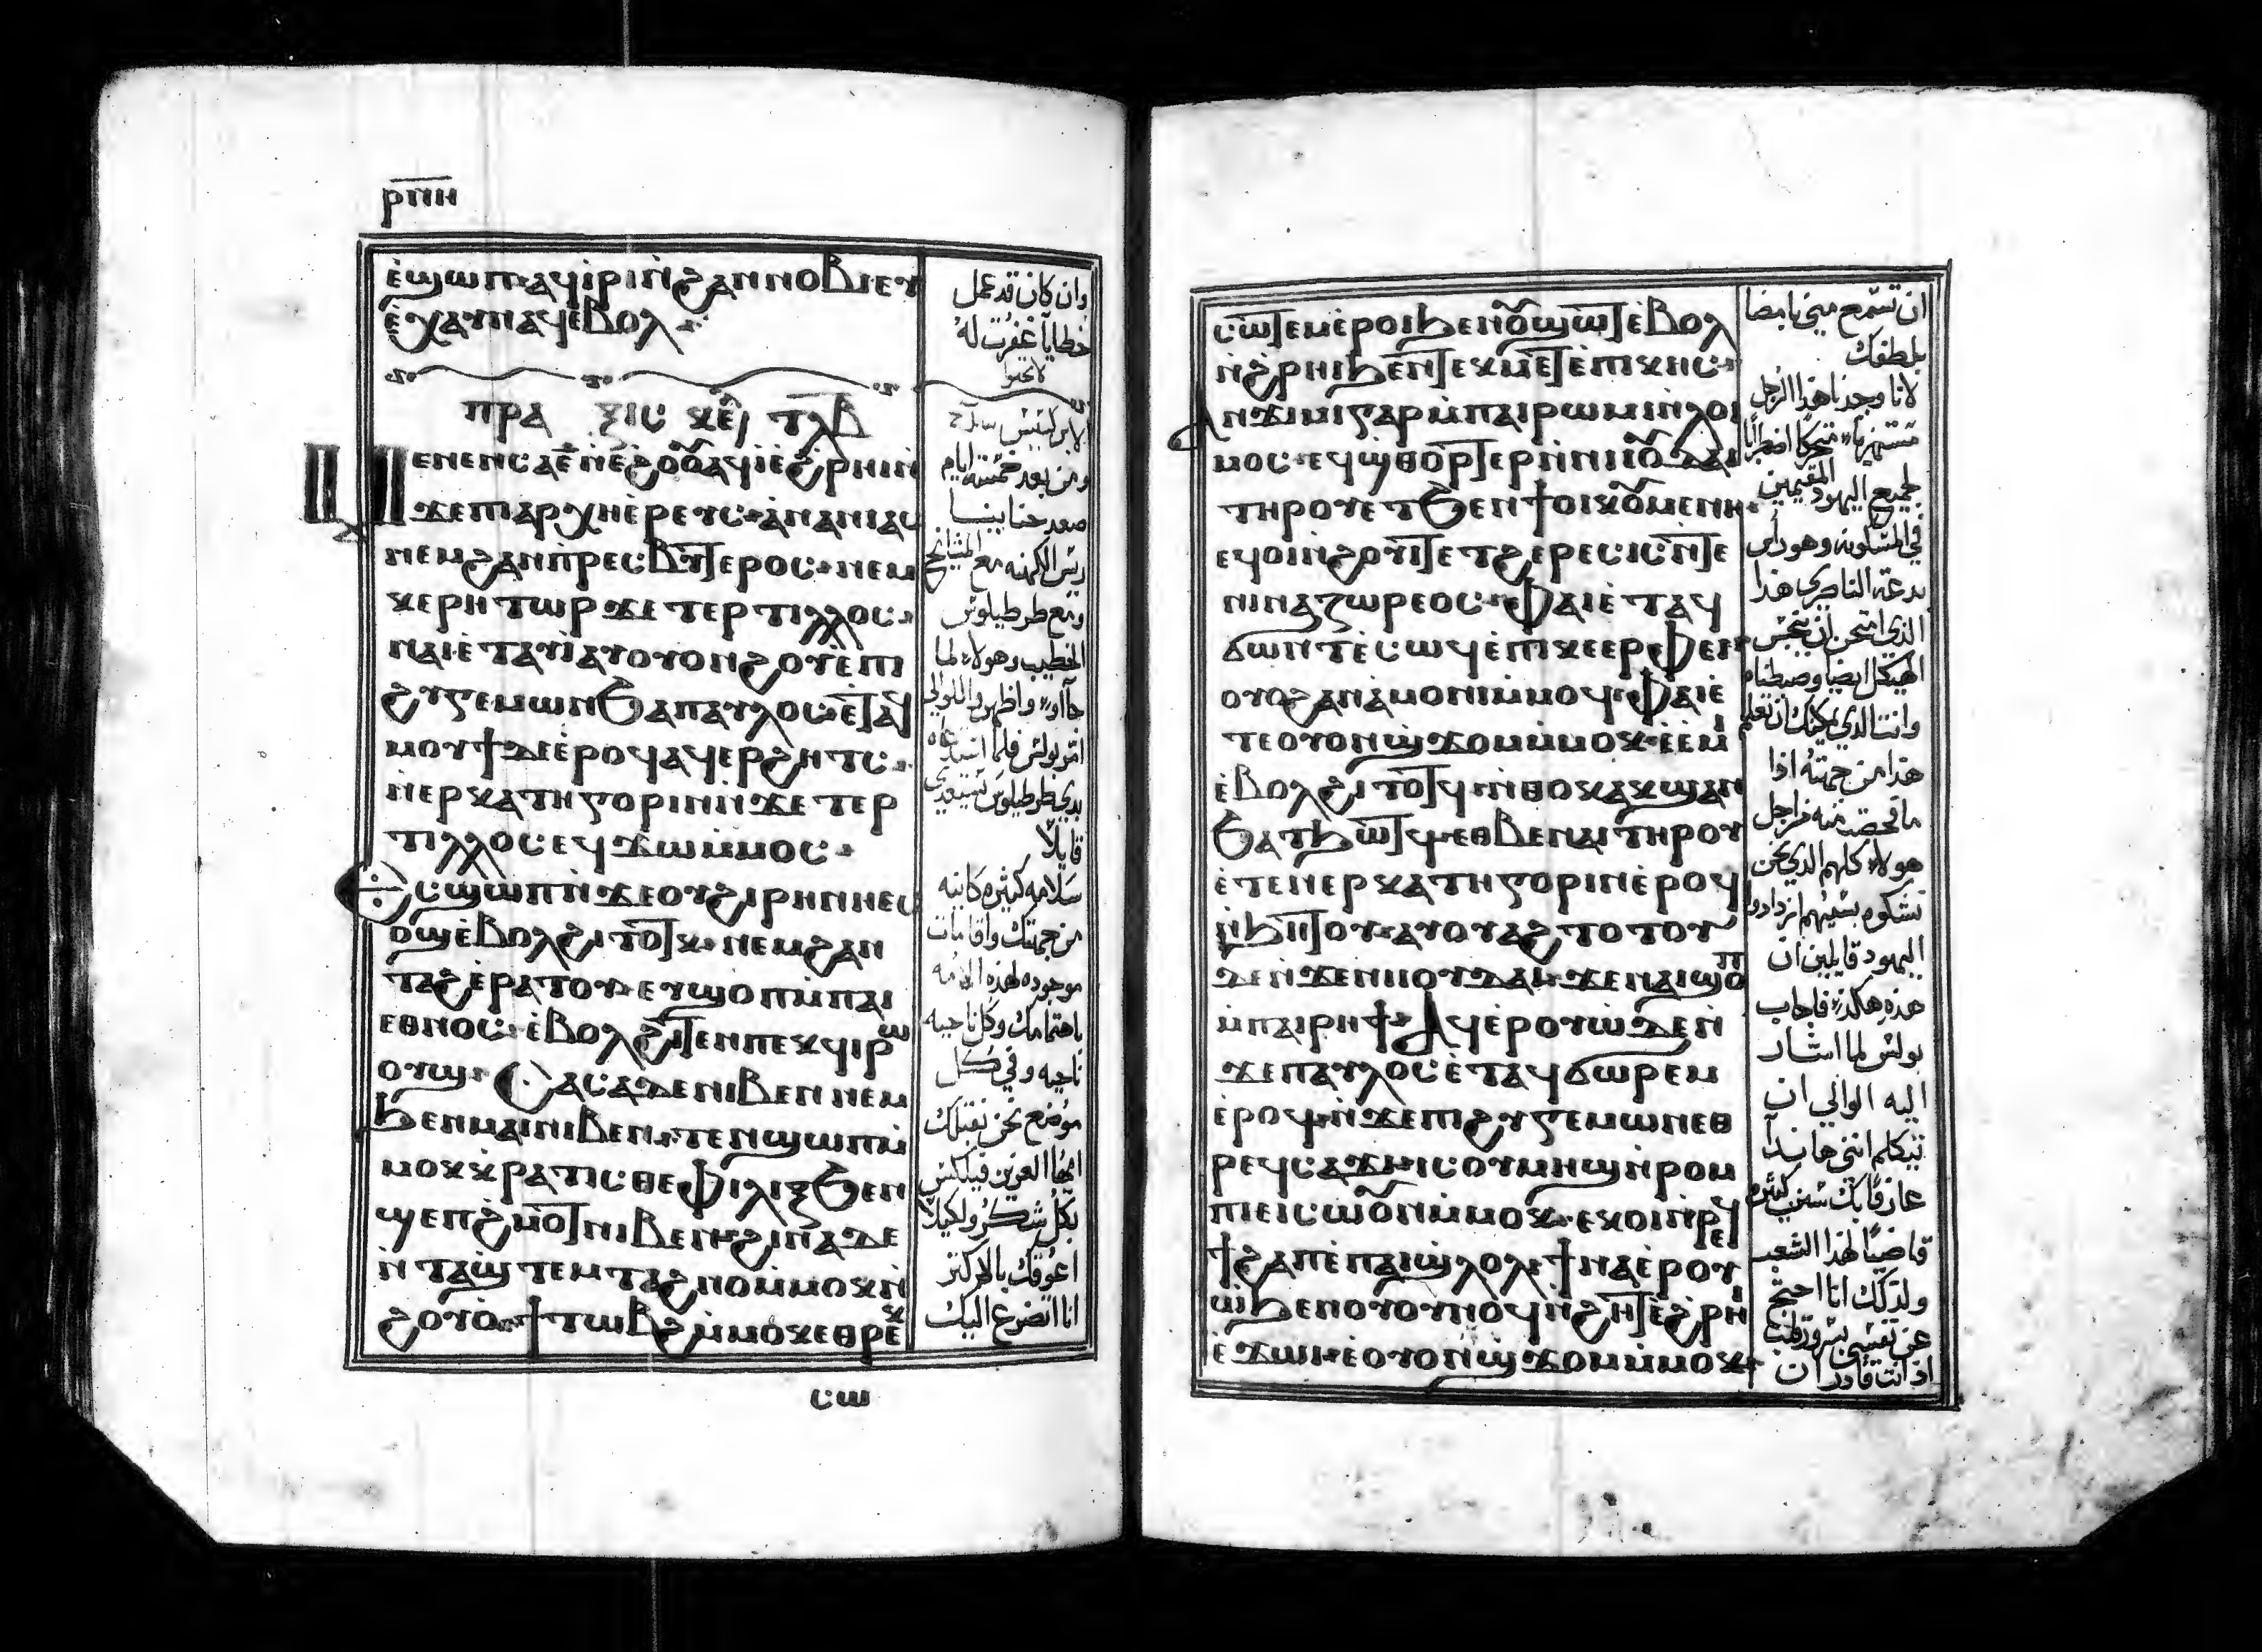 ⲣⲡⲏ
ⲉ̀ϣⲱⲡ ⲁϥⲓⲣⲓ ⲛ̀ϩⲁⲛⲛⲟⲃⲓ ⲉⲩ
ⲉ̀ⲭⲁⲩ ⲛⲁϥ ⲉⲃⲟⲗ
ⲡⲣⲁ ⲝⲓⲥ ⲕⲉ ⲧⲗⲃ
ⲙⲉⲛⲉⲛⲥⲁ ⲉ̅ ⲛ̀ⲉϩⲟⲟⲩ ⲁϥⲓ ⲉ̀ϩⲣⲏⲓ ⲛ̀
ϫⲉ ⲡⲓⲁⲣⲭⲏⲉ̀ⲣⲉⲩⲥ ⲁⲛⲁⲛⲓⲁⲥ
ⲛⲉⲙ ϩⲁⲛⲡⲣⲉⲥⲃⲩⲧⲉⲣⲟⲥ ⲛⲉⲙ
ⲕⲉⲣⲏⲧⲱⲣ ϫⲉ ⲧⲉⲣⲧⲓⲗⲗⲟⲥ
ⲛⲁⲓ ⲉ̀ⲧⲁⲩⲓ̀ ⲁⲩⲟⲩⲟⲛϩⲟⲩ ⲉ̀ⲡⲓ
ϩⲩⲅⲉⲙⲱⲛ ϧⲁ ⲡⲁⲩⲗⲟⲥ ⲉ̀ⲧⲁϥ
ⲙⲟⲩϯ ⲇⲉ ⲉ̀ⲣⲟϥ ⲁϥⲉⲣϩⲏⲧⲥ
ⲛ̀ⲉⲣⲕⲁⲧⲏⲅⲟⲣⲓⲛ ⲛ̀ϫⲉ ⲧⲉⲣ
ⲧⲓⲗⲗⲟⲥ ⲉϥϫⲱ ⲙ̀ⲙⲟⲥ
ⲥϣⲱⲡ ⲛ̀ϫⲉ ⲟⲩϩⲓⲣⲏⲛⲏ ⲉⲥ
ⲟϣ ⲉ̀ⲃⲟⲗ ϩⲓⲧⲟⲧⲕ ⲛⲉⲙ ϩⲁⲛ
ⲧⲁϩⲉ̀ⲣⲁⲧⲟⲩ ⲉⲩϣⲟⲡ ⲙ̀ⲡⲁⲓ
ⲉⲑⲛⲟⲥ ⲉ̀ⲃⲟⲗ ϩⲓⲧⲉⲛ ⲡⲉⲕϥⲓⲣⲱ
ⲟⲩϣ ⲥⲁⲥⲁ ⲇⲉ ⲛⲓⲃⲉⲛ ⲛⲉⲙ
ϧⲉⲛ ⲙⲁⲓ ⲛⲓⲃⲉⲛ ⲧⲉⲛϣⲱⲡ ⲙ̀
ⲙⲟⲕ ⲕⲣⲁⲧⲓⲥⲑⲉ ⲫⲓⲗⲓⲝ ϧⲉⲛ
ϣⲉⲡϩⲙⲟⲧ ⲛⲓⲃⲉⲛ ϩⲓⲛⲁ ⲇⲉ
ⲛ̀ⲧⲁϣⲧⲉⲙⲧⲁϩⲛⲟ ⲙ̀ⲙⲟⲕ ⲛ̀
ϩⲟⲩⲟ̀ ϯⲧⲱⲃϩ ⲙ̀ⲙⲟⲕ ⲉⲑⲣⲉⲕ
ⲥⲱ
وان كان قد عمل
خطايا غفرت له
ومن بعد خمسة ايام
صعد حنانيا
ريس الكهنه مع المشايخ
ومع طرطيلوس
الخطيب وهولاء لما
جااو واظهروا للوالي
امر بولس فلما استدعاه
بدي طرطيلوس يستعدي
قايلاً
سلامه كثيره كاينه
من جهتك واقامات
موجوده لهذه الامه
باهتمامك وكل ناحيه
ناحيه وفي كل
موضع نحن نقبلك
ايها العزيز فيلكس
بكل شكر ولكيلا
اعوقك بالاكثر
انا اتضرع اليك
ⲥⲱⲧⲉⲙ ⲉ̀ⲣⲟⲓ ϧⲉⲛ ⲟⲩϣⲱⲧ ⲉ̀ⲃⲟⲗ
ⲛ̀ϩⲣⲏⲓ ϧⲉⲛ ⲧⲉⲕⲙⲉⲧⲉ̀ⲡⲓⲕⲏⲥ
ⲁⲛϫⲓⲙⲓ ⲅⲁⲣ ⲙ̀ⲡⲁⲓⲣⲱⲙⲓ ⲛ̀ⲗⲟⲓ
ⲙⲟⲥ ⲉϥϣⲑⲟⲣⲧⲉⲣ ⲛ̀ⲛⲓⲓⲟⲩⲇⲁⲓ
ⲧⲏⲣⲟⲩ ⲉⲧϧⲉⲛ ϯⲟⲓⲕⲟⲩⲙⲉⲛⲏ
ⲉϥⲟⲓ ⲛ̀ϩⲟⲩⲓⲧ ⲉⲧϩⲉⲣⲉⲥⲓⲥ ⲛ̀ⲧⲉ
ⲛⲓⲛⲁⲍⲱⲣⲉⲟⲥ ⲫⲁⲓ ⲉ̀ⲧⲁϥ
ϭⲱⲛⲧ ⲉ̀ⲥⲱϥ ⲉ̀ⲡⲓⲕⲉⲉⲣⲫⲉⲓ
ⲟⲩⲟϩ ⲁⲛⲁ̀ⲙⲟⲛⲓ ⲙ̀ⲙⲟϥ ⲫⲁⲓ ⲉ̀
ⲧⲉ ⲟⲩⲟⲛϣϫⲟⲙ ⲙ̀ⲙⲟⲕ ⲉ̀ⲉ̀ⲙⲓ
ⲉ̀ⲃⲟⲗ ϩⲓⲧⲟⲧϥ ⲛ̀ⲑⲟⲕ ⲁⲕϣⲁⲛ
ϧⲁⲧϧⲱⲧϥ ⲉⲑⲃⲉ ⲛⲁⲓ ⲧⲏⲣⲟⲩ
ⲉ̀ⲧⲉⲛⲉⲣⲕⲁⲧⲏⲅⲟⲣⲓⲛ ⲉ̀ⲣⲟϥ
ⲛ̀ϧⲏⲧⲟⲩ ⲁⲩⲟⲩⲁϩⲧⲟⲧⲟⲩ
ⲇⲉ ⲛ̀ϫⲉ ⲛⲓⲓⲟⲩⲇⲁⲓ ϫⲉ ⲛⲁⲓ ϣⲟⲡ
ⲙ̀ⲡⲁⲓⲣⲏϯ ⲁϥⲉ̀ⲣⲟⲩⲱ̀ ⲇⲉ ⲛ̀
ϫⲉ ⲡⲁⲩⲗⲟⲥ ⲉ̀ⲧⲁϥϭⲱⲣⲉⲙ
ⲉ̀ⲣⲟϥ ⲛ̀ϫⲉ ⲡⲓϩⲩⲅⲉⲙⲱⲛ ⲉⲑ
ⲣⲉϥⲥⲁϫⲓ ⲓⲥ ⲟⲩⲙⲏϣ ⲛ̀ⲣⲟⲙ
ⲡⲓ ⲉⲓⲥⲱⲟⲩⲛ ⲙ̀ⲙⲟⲕ ⲉⲕⲟⲓ ⲛ̀ⲣⲉϥ
ϯϩⲁⲡ ⲉ̀ⲡⲁⲓϣⲗⲟⲗ ϯⲛⲁⲉ̀ⲣⲟⲩ
ⲱ̀ ϧⲉⲛ ⲟⲩⲟⲩⲛⲟϥ ⲛ̀ϩⲏⲧ ⲉ̀ϩⲣⲏⲓ
ⲉ̀ϫⲱⲓ ⲉⲟⲩⲟⲛϣϫⲟⲙ ⲙ̀ⲙⲟⲕ
ان تسمع مني بامضا
بلطفك
لانا وجدنا هذا الرجل
لجميع اليهود المقيمين
في المسكونه وهو راس
بدعة الناصري هذا
الذي امتحن ان ينجس
الهيكل ايضا وضبطناه
وانت الذي يمكنك ان تعلم
هذا من جهته اذا
ما فحصت منه من اجل
هولاء كلهم الذي نحن
نشكوه بسببهم ازدادوا
اليهود قايلين ان
هذه هكذا فاجاب
بولس لما اشار
اليه الوالي ان
يتكلم انني هانذا
عارفا بك سنين كثيره
قاضيا لهذا الشعب
ولذلك انا احتج
عن نفسي بسرور قلب
اذ انت قادر ان